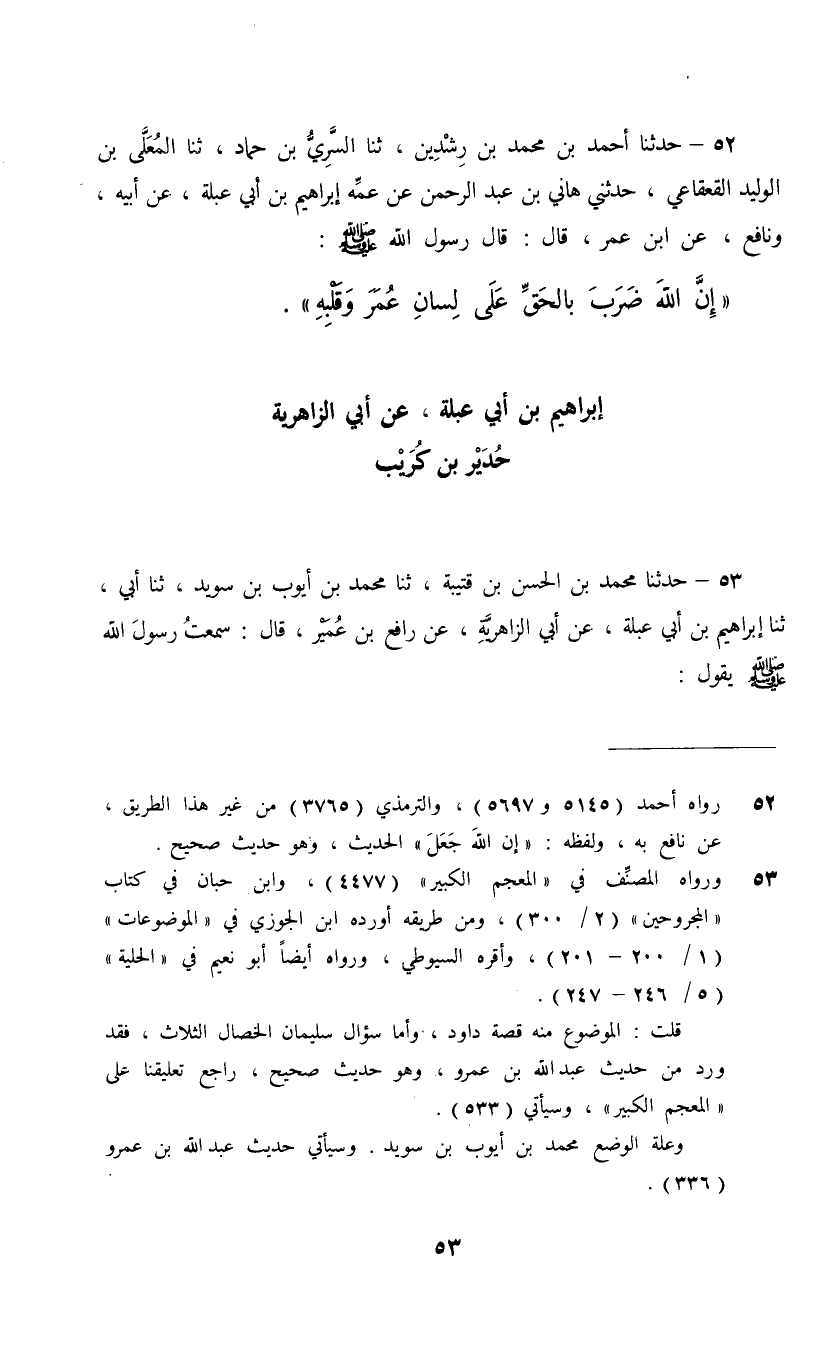 ٥٢ – حدثنا أحمد بن محمد بن رِشْدِين ، ثنا السَّرِيُّ بن حماد ، ثنا المُعَلَّى بن
الوليد القعقاعي ، حدثني هاني بن عبد الرحمن عن عمِّه إبراهيم بن أبي عبلة ، عن أبيه ،
ونافع ، عن ابن عمر ، قال : قال رسول الله ﷺ :
« إِنَّ اللّهَ ضَرَبَ بالحَقِّ عَلَى لِسانِ عُمَرَ وَقَلْبِهِ» .
إبراهيم بن أبي عبلة ، عن أبي الزاهرية
حُدَيْر بن كُرَيْب
٥٣ – حدثنا محمد بن الحسن بن قتيبة ، ثنا محمد بن أيوب بن سويد ، ثنا أبي ،
ثنا إبراهيم بن أبي عبلة ، عن أبي الزاهريَّةِ ، عن رافع بن عُمَيْر ، قال : سمعتُ رسولَ الله
ﷺ يقول :
٥٢ رواه أحمد (٥١٤٥ و ٥٦٩٧) ، والترمذي (٣٧٦٥) من غير هذا الطريق ،
عن نافع به ، ولفظه : « إن اللّهَ جَعَلَ» الحديث ، وهو حديث صحيح .
٥٣ ورواه المصنِّف في «المعجم الكبير» (٤٤٧٧) ، وابن حبان في كتاب
«المجروحين» (٢ / ٣٠٠) ، ومن طريقه أورده ابن الجوزي في «الموضوعات»
(١ / ٢٠٠ – ٢٠١) ، وأقره السيوطي ، ورواه أيضاً أبو نعيم في «الحلية»
(٥ / ٢٤٦ – ٢٤٧) .
قلت : الموضوع منه قصة داود ، وأما سؤال سليمان الخصال الثلاث ، فقد
ورد من حديث عبدالله بن عمرو ، وهو حديث صحيح ، راجع تعليقنا على
«المعجم الكبير» ، وسيأتي (٥٣٣) .
وعلة الوضع محمد بن أيوب بن سويد . وسيأتي حديث عبدالله بن عمرو
(٣٣٦) .
٥٣